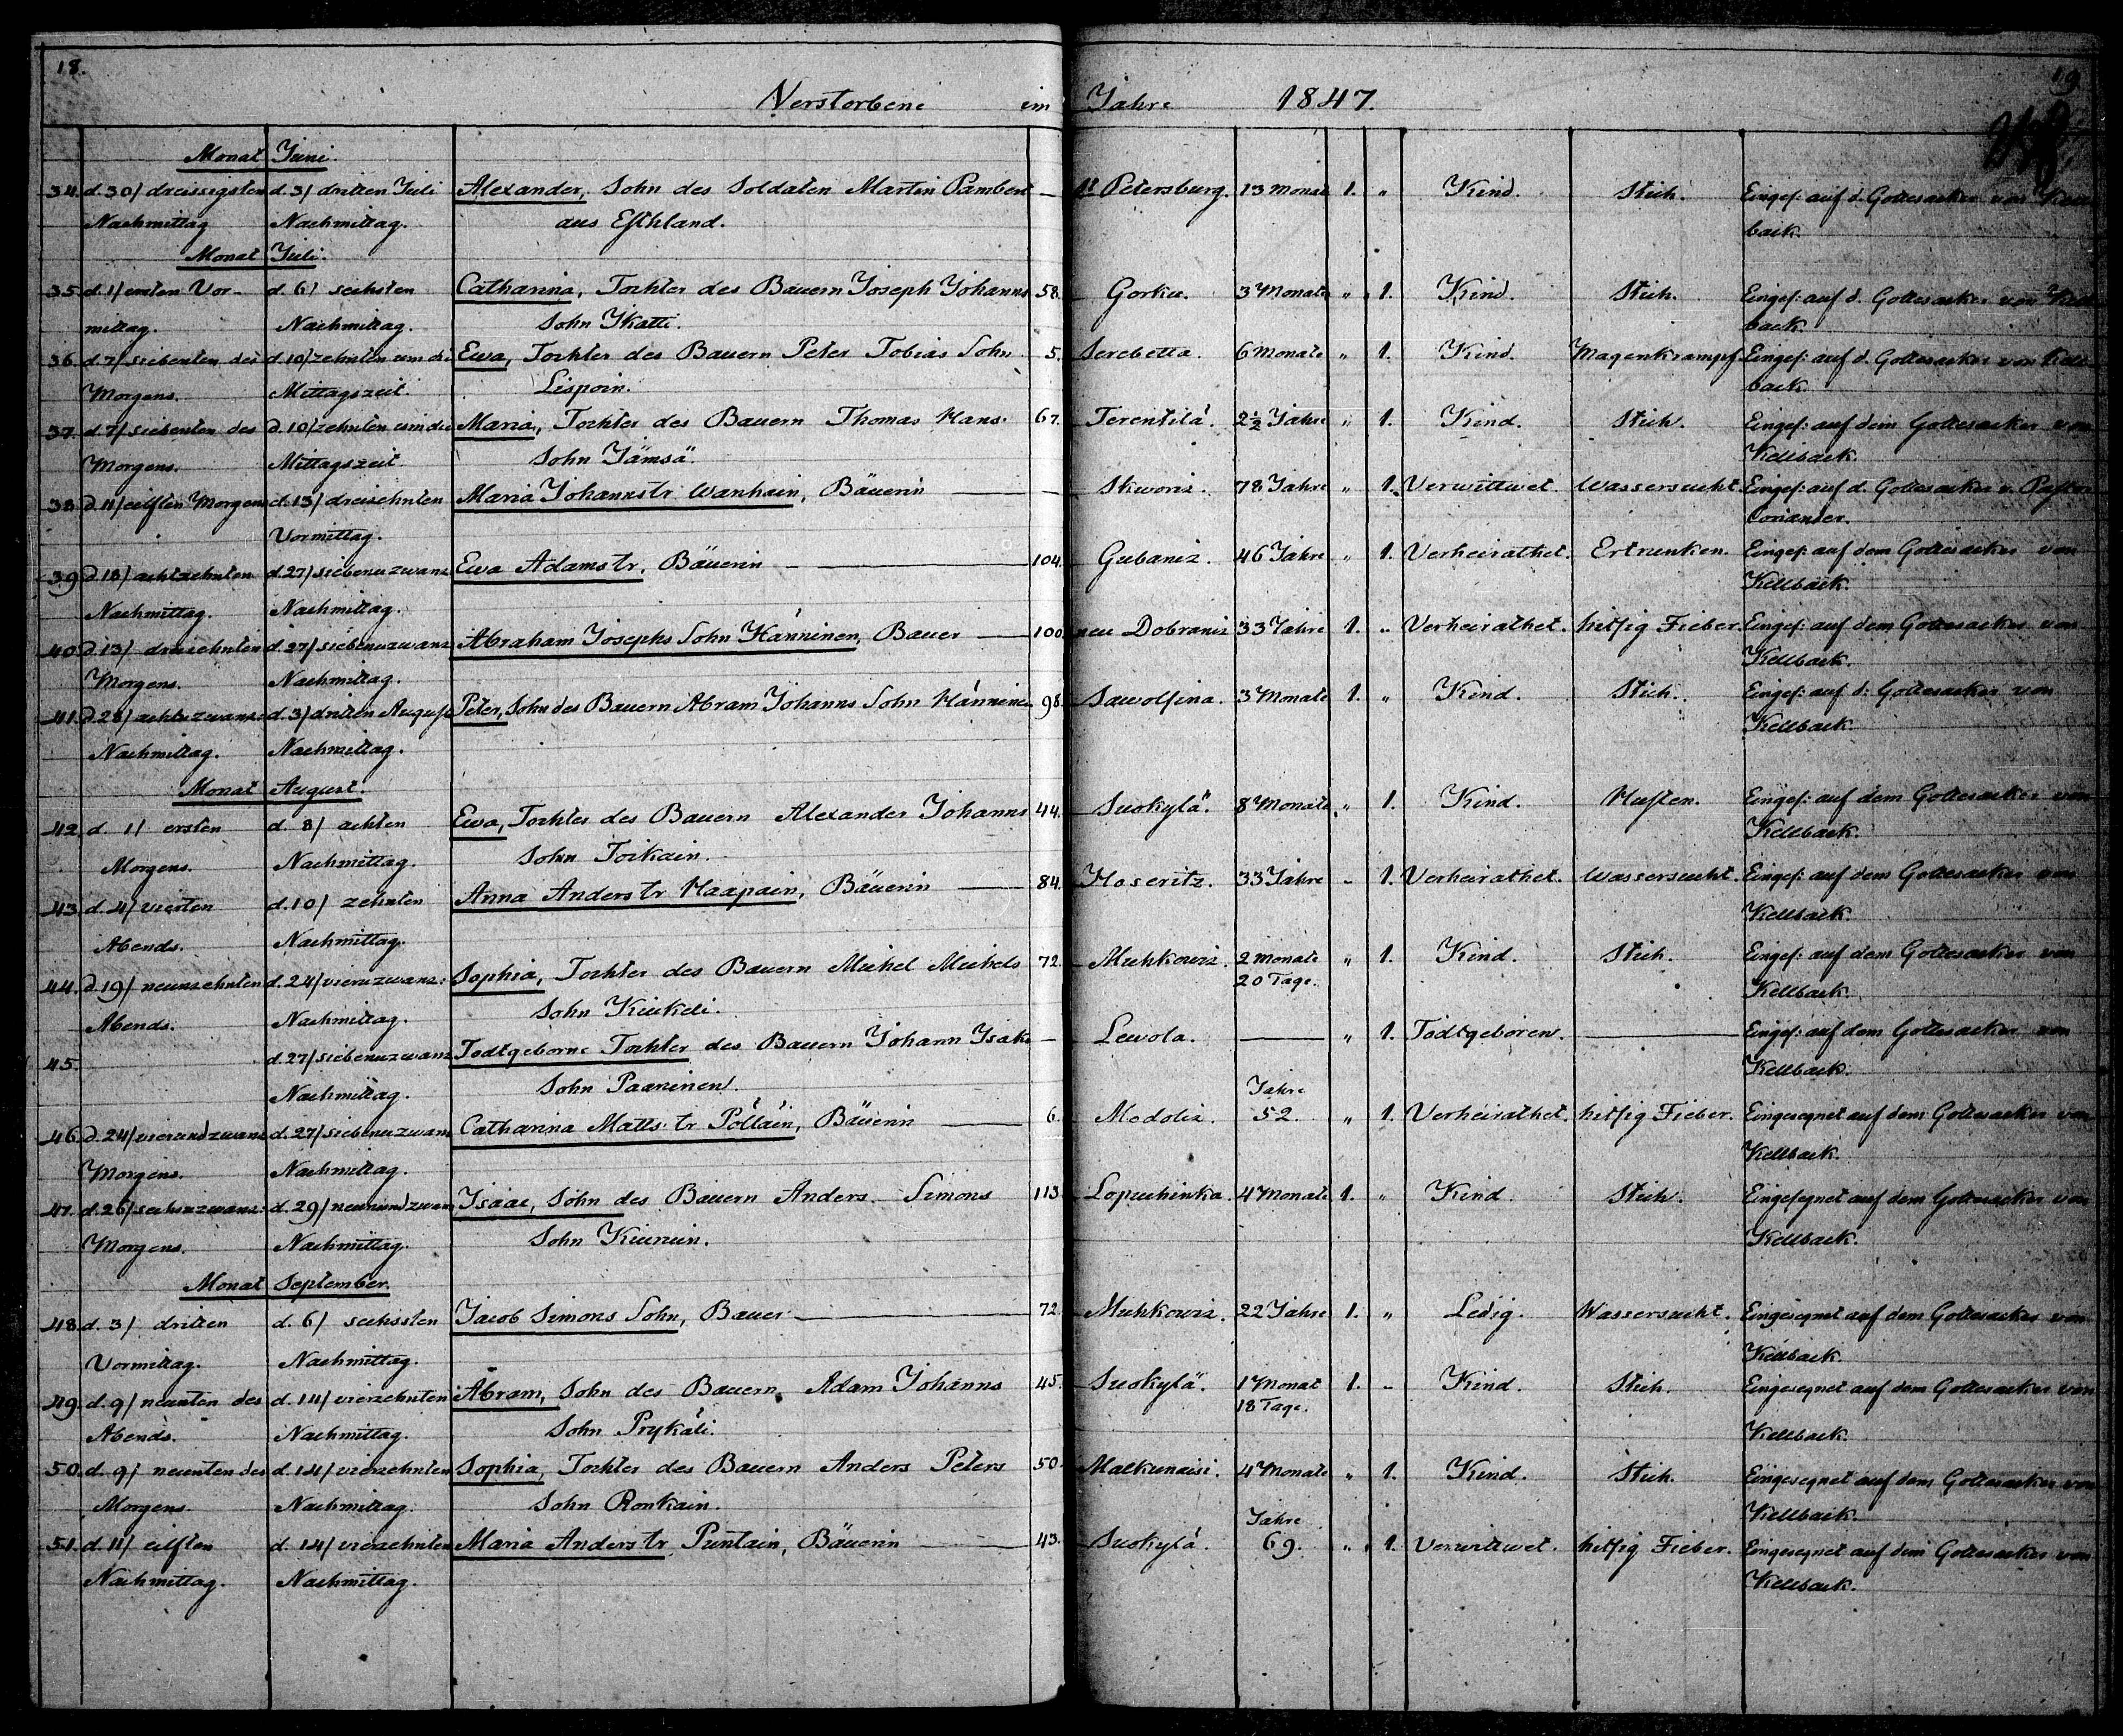 18.
19
Verstorbene im Jahre 1847.
Monat Juni.
34. d. 30/ dreissigsten d. 3/ dritten Juli Alexander, Sohn des Soldaten Martin Pambert — St Petersburg. 13 Monat 1. " Kind. Stich. Eingef: auf d. Gottesacker von
Nachmittag Nachmittag. aus Esthland. back.
Monat Juli.
35. d. 1/ ersten Vor- d. 6/ sechsten Catharina, Tochter des Bauern Joseph Johanns 58. Gorku. 3 Monate " 1. Kind. Stich. Eingef: auf d. Gottesacker von Kell
mittag. Nachmittag. Sohn Ikatti. back.
36. d. 7/ siebenten des d. 10/ zehnten um die Ewa, Tochter des Bauern Peter Tobias Sohn 5. Serebetta. 6 Monate " 1. Kind. Magenkrampf. Eingef: auf d. Gottesacker von Kell
Morgens. Mittagszeit. Lispoin. back.
37. d. 7/ siebenten des d. 10/ zehnten um die Maria, Tochter des Bauern Thomas Hans 67. Terentilä. 2½ Jahre " 1. Kind. Stich. Eingef: auf dem Gottesacker von
Morgens. Mittagszeit. Sohn Jämsä. Kellback.
38. d. 11/ eilften Morgens d. 13/ dreizehnten Maria Johannstr Wanhain, Bäuerin — Skworiz. 78 Jahre " 1. Verwittwet. Wassersucht. Eingef: auf d. Gottesacker v. Pastor
Vormittag. Coriander.
39. d. 18/ achtzehnten d. 27/ siebenuzwanz Ewa Adamstr, Bäuerin — 104. Gubaniz. 46 Jahre " 1. Verheirathet. Ertrunken. Eingef: auf dem Gottesacker von
Nachmittag. Nachmittag. Kellback.
40. d. 13/ dreizehnten d. 27/ siebenuzwanz Abraham Josephs Sohn Hänninen, Bauer — 100. neu Dobraniz 33 Jahre 1. " Verheirathet. hitsig Fieber. Eingef: auf dem Gottesacker von
Morgens. Nachmittag. Kellback.
41. d. 28/ achtuzwanz: d. 3/ dritten August Peter, Sohn des Bauern Abram Johanns Sohn Hänninen 98. Sawolsina. 3 Monate 1. " Kind. Stich. Eingef: auf d: Gottesacker von
Nachmittag. Nachmittag. Kellback.
Monat August.
42. d. 1/ ersten d. 8/ achten Ewa, Tochter des Bauern Alexander Johanns 44. Suokylä. 8 Monate " 1. Kind. Husten. Eingef: auf dem Gottesacker von
Morgens. Nachmittag. Sohn Torkain. Kellback.
43. d. 4/ vierten d. 10/ zehnten Anna Anderstr Haapain, Bäuerin — 84. Hoseritz. 33 Jahre - 1. Verheirathet. Wassersucht. Eingef: auf dem Gottesacker von
Abends. Nachmittag. Kellback.
44. d. 19/ neunzehnten d. 24/ vieruzwanz: Sophia, Tochter des Bauern Michel Michels 72. Muhkowiz. 2 Monate " 1. Kind. Stich. Eingef: auf dem Gottesacker von
20 Tage.
Abends. Nachmittag. Sohn Kiukeli. Kellback.
45. d. 27/ siebenuzwanz Todtgeborne Tochter des Bauern Johann Isaks — Lewola. — " 1. Todtgeboren. — Eingef: auf dem Gottesacker von
Nachmittag. Sohn Paaninen. Kellback.
Jahre
46. d. 24/ vierundzwanz d. 27/ siebenuzwanz Catharina Matts: tr Pölläin, Bäuerin — 6. Modoliz. 52. " 1. Verheirathet. hitsig Fieber. Eingesegnet auf dem Gottesacker von
Morgens. Nachmittag. Kellback.
47. d. 26/ sechsuzwanz: d. 29/ neunundzwanz Isaac, Sohn des Bauern Anders Simons 113. Lopuchinka. 4 Monate 1. " Kind. Stich. Eingesegnet auf dem Gottesacker von
Morgens. Nachmittag. Sohn Kiuruin. Kellback.
Monat September.
48. d. 3/ dritten d. 6/ sechssten Jacob Simons Sohn, Bauer — 72. Muhkowiz. 22 Jahre 1. " Ledig. Wassersucht. Eingesegnet auf dem Gottesacker von
Vormittag. Nachmittag. Kellback.
49. d. 9/ neunten des d. 14/ vierzehnten Abram, Sohn des Bauern Adam Johanns 45. Suokylä. 1 Monat 1. " Kind. Stich. Eingesegnet auf dem Gottesacker von
18 Tage.
Abends. Nachmittag. Sohn Prykäli. Kellback.
50. d. 9/ neunten des d. 14/ vierzehnten Sophia, Tochter des Bauern Anders Peters 50. Malkunaisi. 4 Monate " 1. Kind. Stich. Eingesegnet auf dem Gottesacker von
Morgens. Nachmittag. Sohn Ronkain. Kellback.
Jahre
51. d. 11/ eilften d. 14/ vierzehnten Maria Anderstr Puntain, Bäuerin — 43. Suokylä. 69. " 1. Verwittwet. hitsig Fieber. Eingesegnet auf dem Gottesacker von
Nachmittag. Nachmittag. Kellback.